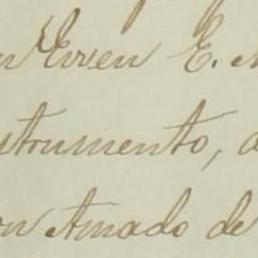 Erren E.
strumento,
on Amado de